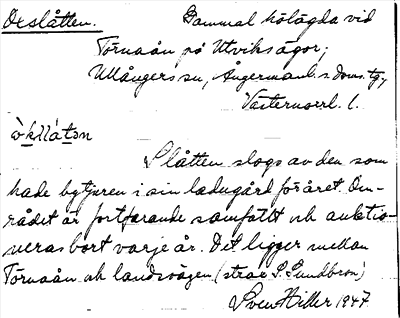 Oxslåtten. Gammal hölägda vid
Törnaån på Utviksägor;
Ullångers sn, Ångermanl. s. doms. tg,
Västernorrl. l.
Slåtten slogs av den som
hade bytjuren i sin ladugård för året. Om-
rådet är fortfarande samfällt och auktio-
neras bort varje år. Det ligger mellan
Törnaån och landsvägen (strax S. Sundbron)
Sven Hiller 1947.